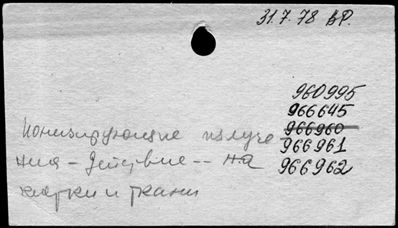 31.7.78 ВР.
960995
966645
966960
966961
966962
Ионизирующие излуче
ния – действие -- на
и ткани